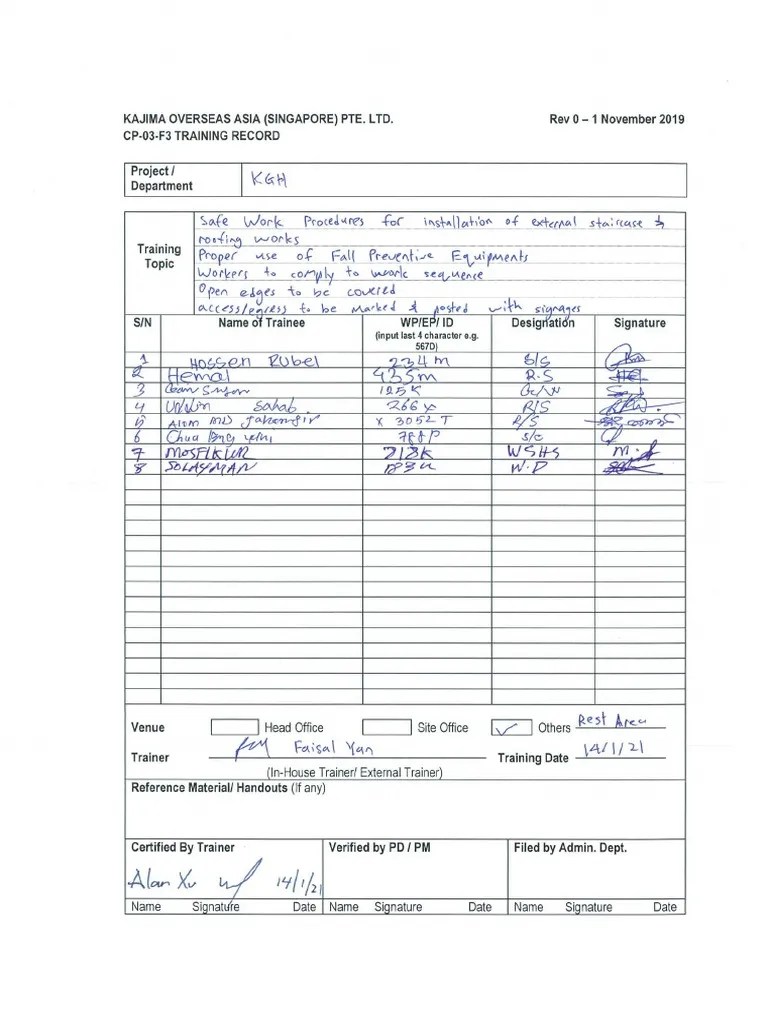 KAJIMA OVERSEAS ASIA (SINGAPORE) PTE. LTD. Rev 0 – 1 November 2019
CP-03-F3 TRAINING RECORD
Project / Department KGH
Training Topic
Safe Work Procedures for installation of external staircase &
roofing works
Proper use of Fall Preventive Equipments
Workers to comply to work sequence
Open edges to be covered
access/egress to be marked & posted with signages
S/N Name of Trainee WP/EP/ ID (input last 4 character e.g. 567D) Designation Signature
1 HOSSEN RUBEL 234M S/S
2 Hemal 435M R.S
3 125K
4 Sahab 266X R/S
5 Alom MD Jahangir X 3052T R/S
6 Chua 788P S/C
7 MOSFIKUR 218K WSHS M.
8 SOLAYMAN W.P
Venue Head Office Site Office ✓ Others Rest Area
Trainer Faisal Yan Training Date 14/1/21
(In-House Trainer/ External Trainer)
Reference Material/ Handouts (If any)
Certified By Trainer Verified by PD / PM Filed by Admin. Dept.
Alan Xu 14/1/21
Name Signature Date Name Signature Date Name Signature Date